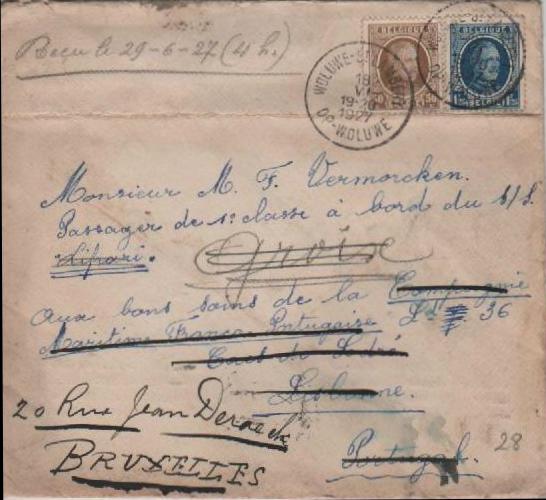 Reçu le 29-6-27 (4 h.)
BELGIQUE
BELGIQUE
WOLUWE-ST
18
VI
19-20
1927
OP-WOLUWE
Monsieur M. F. Vermorcken.
Passager de 1e classe à bord du S/S.
Lipari.
Groix
aux bons soins de la Compagnie
Maritime Franco Portugaise
36
Lisbonne.
20 Rue Jean
BRUXELLES
Portugal.
28